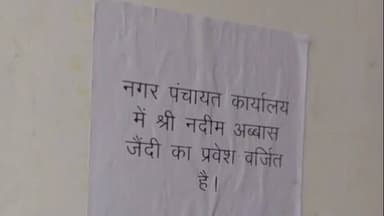 नगर पंचायत कार्यालय
में श्री नदीम अब्बास
जैंदी का प्रवेश वर्जित
है।